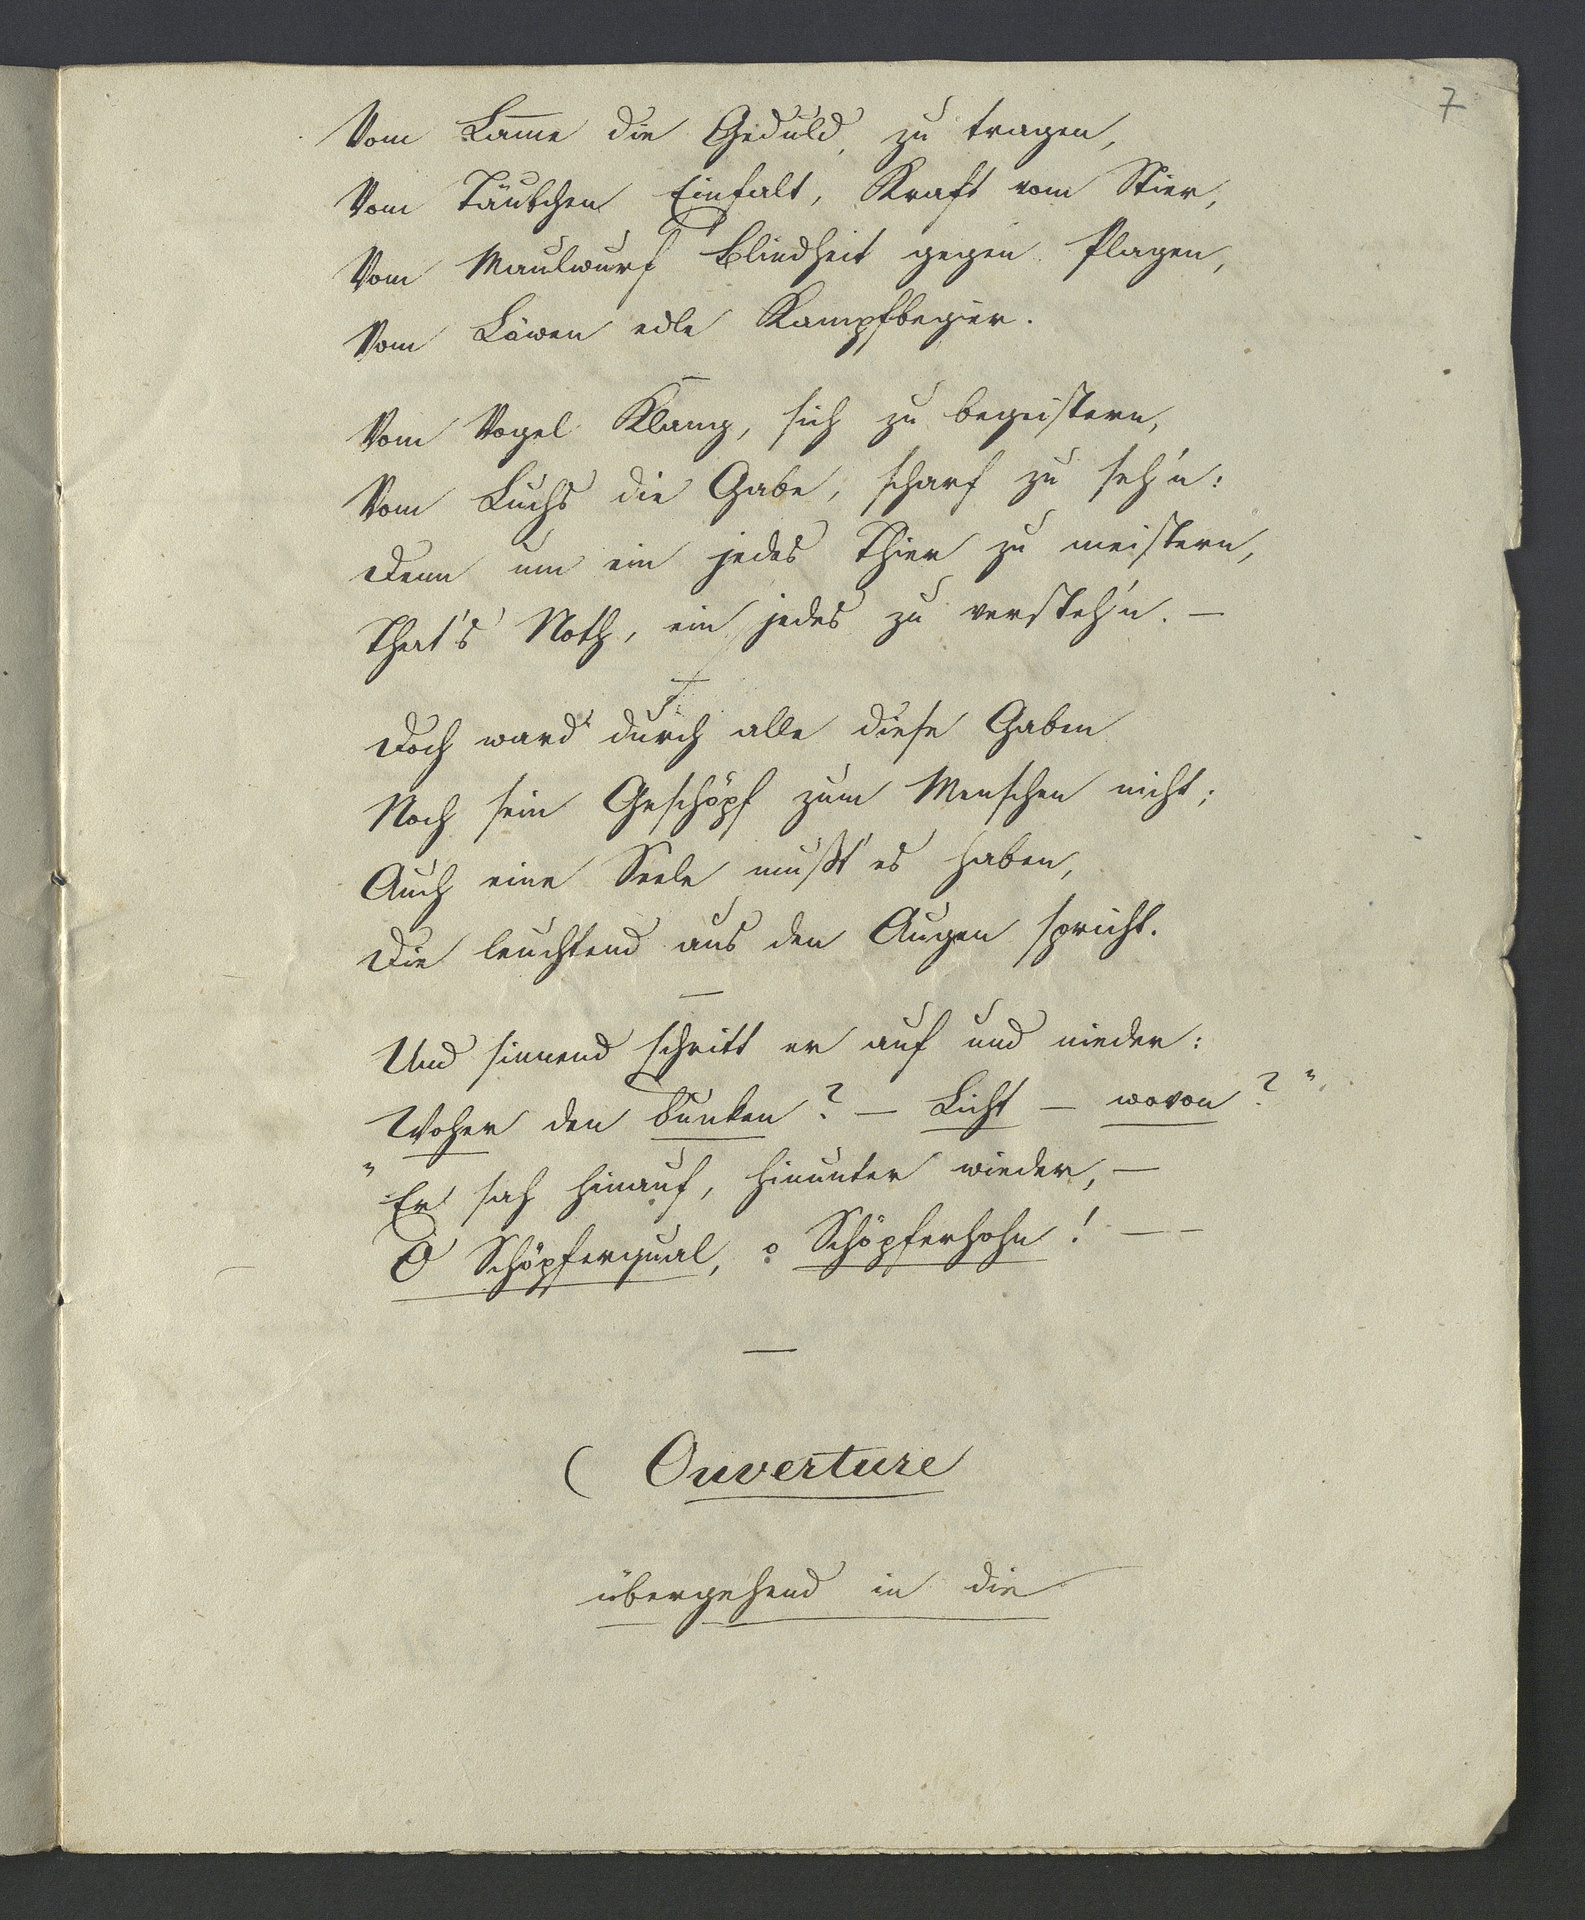 7
Vom Lam̅e die Geduld, zu tragen,
Vom Täubchen Einfalt, Kraft vom Stier,
Vom Maulwurf Blindheit gegen Plagen,
Vom Löwen edle Kampfbegier.
—
Vom Vogel Klang, sich zu begeistern,
Vom Luchs die Gabe, scharf zu seh'n:
Denn um ein jedes Thier zu meistern,
That's Noth, ein jedes zu versteh'n. —
Doch ward durch alle diese Gaben
Noch sein Geschöpf zum Menschen nicht;
Auch eine Seele mußt' es haben,
Die leuchtend aus den Augen spricht.
—
Und sinnend schritt er auf und nieder:
„Woher den Funken? — Licht — wovon?"
Er sah hinauf, hinunter wieder, —
O Schöpferqual, o Schöpferhohn! — —
—
( Ouverture
übergehend in die